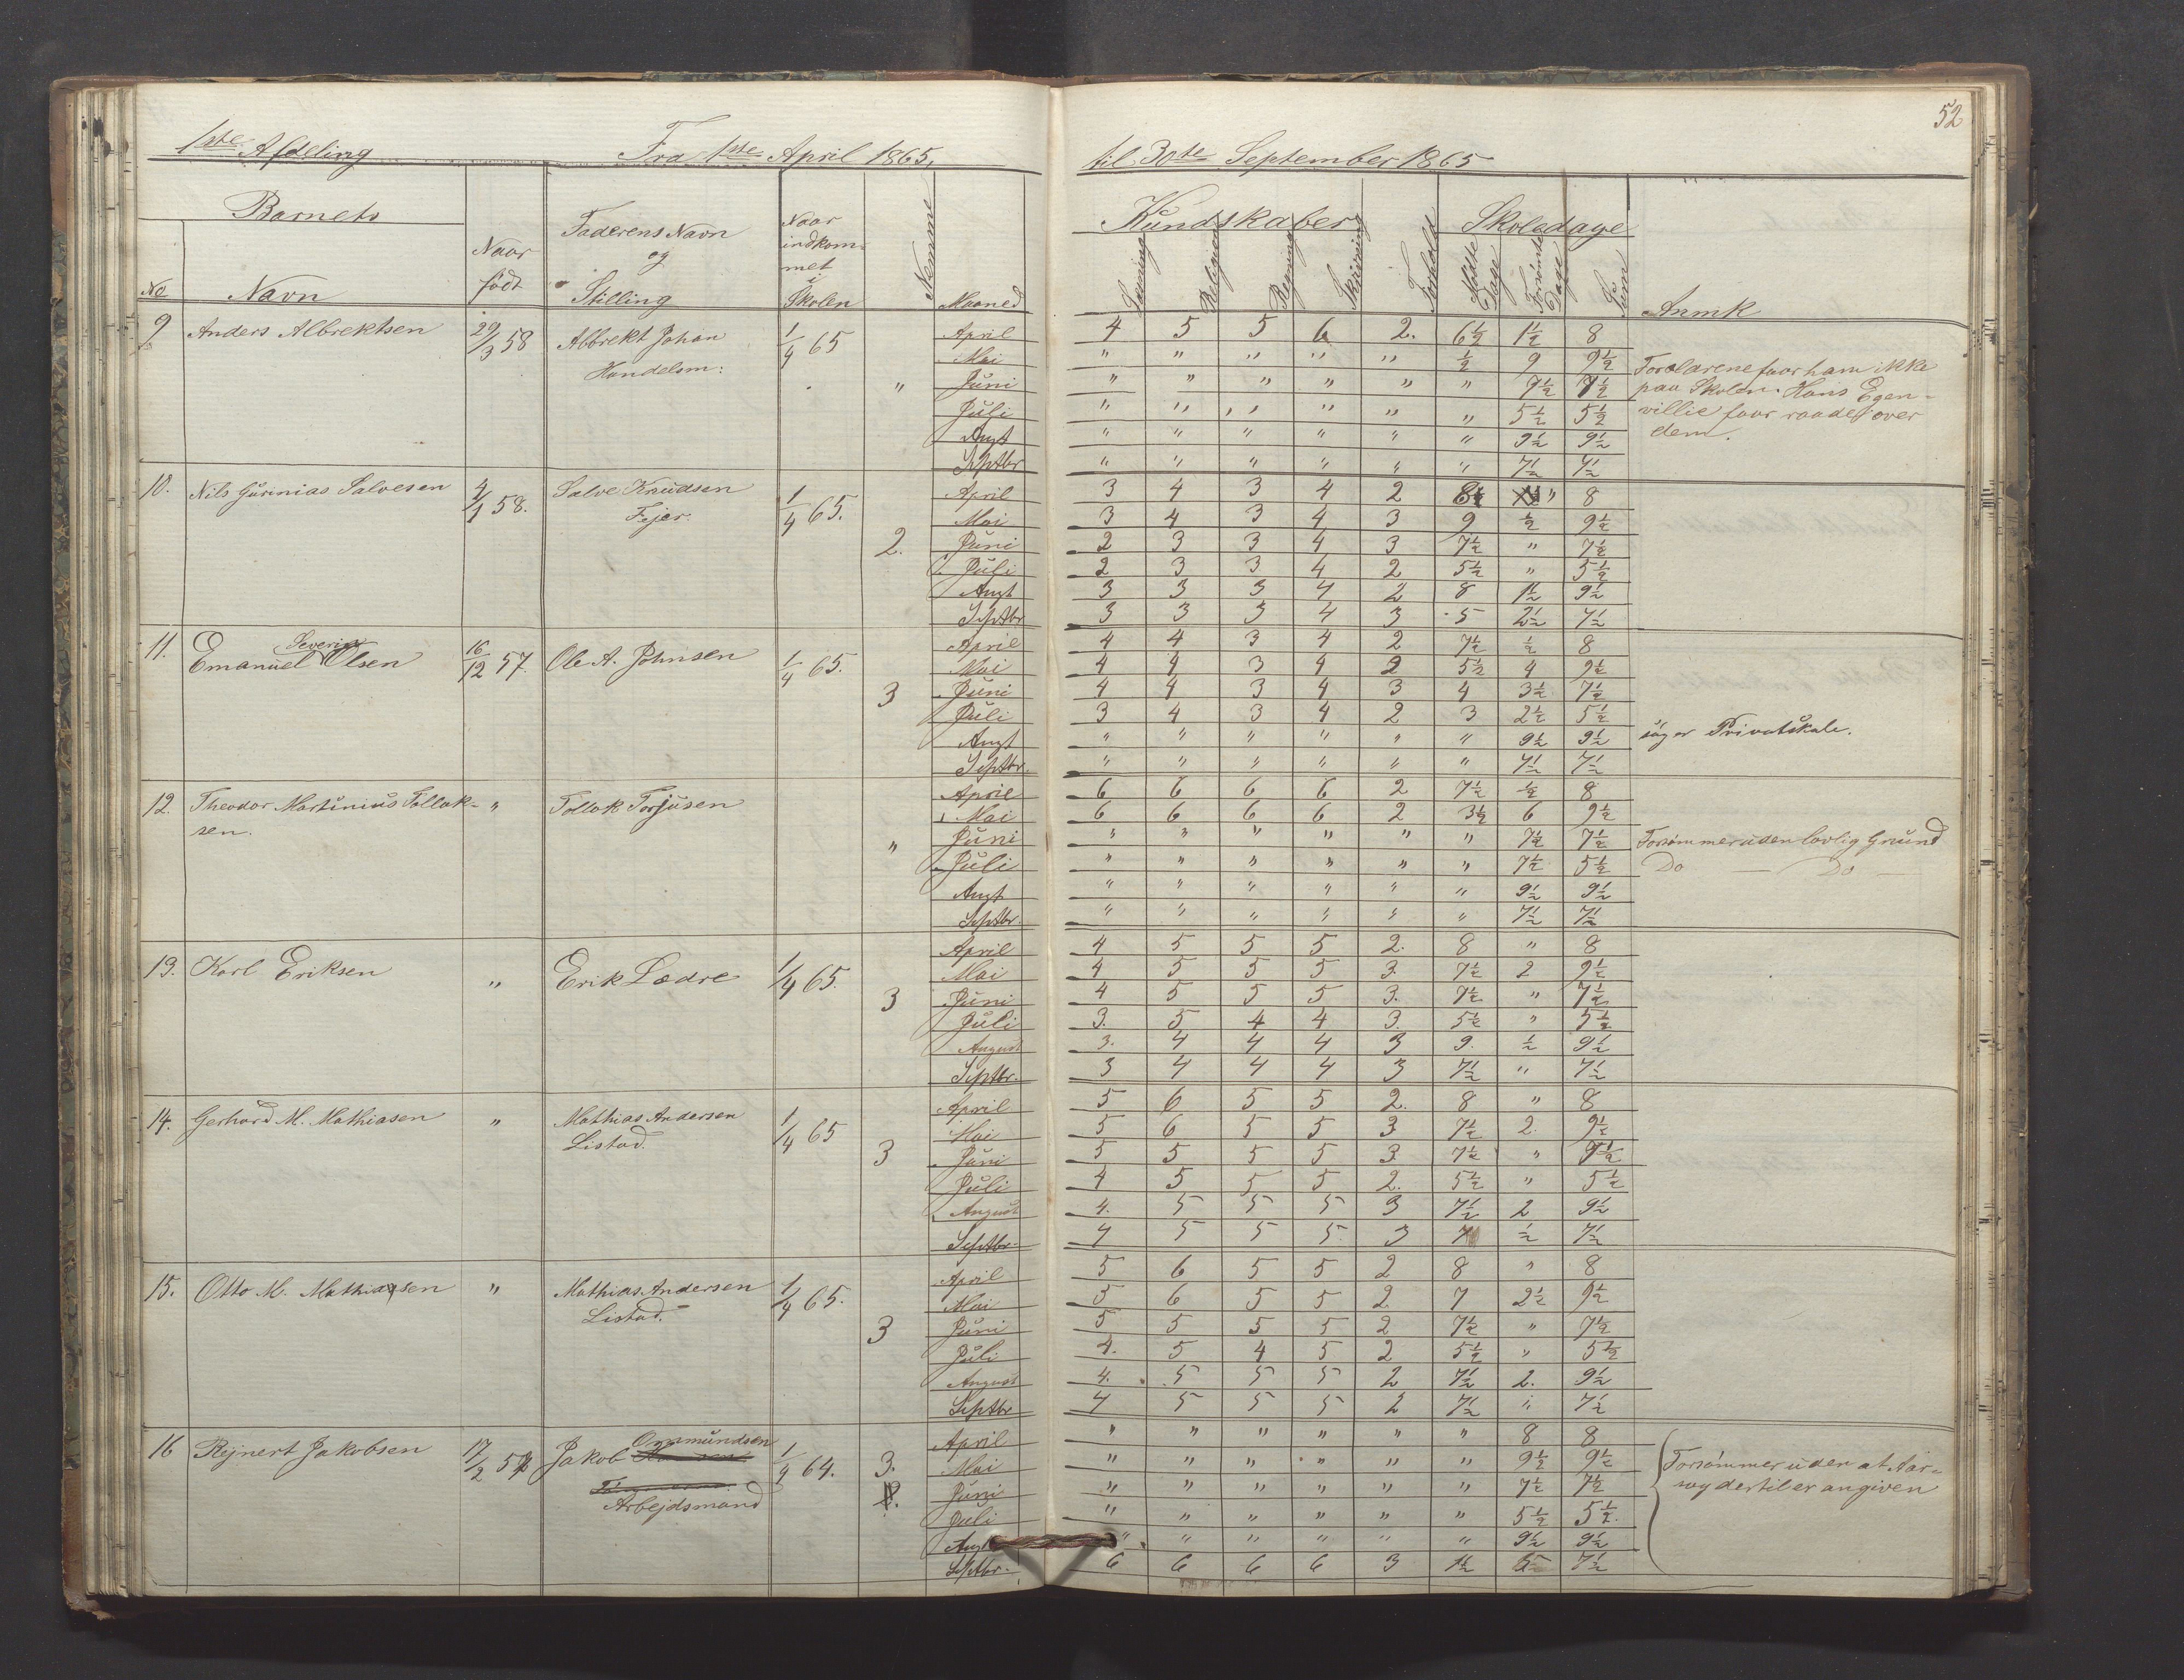 52
1ste Afdeling Fra 1ste April 1865, til 30te September 1865
Barnets
No Navn
Naar født
Faderens Navn og Stilling
Naar indkommet i Skolen
Nemme
Maaned
Kundskaber
Læsning Religion Regning Skrivning
Forhold
Skoledage
Mødte Dage Forsømte Dage Sum
Anmk
9 Anders Albrektsen 29/3 58 Albrekt Johan 1/4 65 April 4 5 5 6 2. 6½ 1½ 8
Handelsm:
Mai " " " " " ½ 9 9½
" Juni " " " " " " 7½ 7½
Juli " " " " " " 5½ 5½
Augt " " " " " " 9½ 9½
Septbr " " " " " " 7½ 7½
Forældrene faar ham ikke
paa Skolen. Hans Egen-
villie faar raade over
dem.
10. Nils Gurinias Salvesen 4/1 58. Salve Knudsen 1/4 65. April 3 4 3 4 2 8 " 8
Fejer.
Mai 3 4 3 4 3 9 ½ 9½
2. Juni 2 3 3 4 3 7½ " 7½
Juli 2 3 3 4 2 5½ " 5½
Augt 3 3 3 4 2 8 1½ 9½
Septbr 3 3 3 4 3 5 2½ 7½
Severin
11. Emanuel Olsen 16/12 57. Ole A. Johnsen 1/4 65. April 4 4 3 4 2 7½ ½ 8
Mai 4 4 3 4 2 5½ 4 9½
3 Juni 4 4 3 4 3 4 3½ 7½
Juli 3 4 3 4 2 3 2½ 5½
Augt " " " " " " 9½ 9½ søger Privatskole.
Septbr. " " " " " " 7½ 7½
12. Theodor Martinius Tollak- " Tollak Torjusen April 6 6 6 6 2 7½ ½ 8
sen.
Mai 6 6 6 6 2 3½ 6 9½
" Juni " " " " " " 7½ 7½ Forsømmer uden lovlig Grund
Juli " " " " " " 7½ 5½ Do — Do —
Augt " " " " " " 9½ 9½
Septbr. " " " " " " 7½ 7½
13. Karl Eriksen " Erik Lædre 1/4 65. April 4 5 5 5 2. 8 " 8
Mai 4 5 5 5 3. 7½ 2 9½
3 Juni 4 5 5 5 3. 7½ " 7½
Juli 3. 5 4 4 3. 5½ " 5½
August 3. 4 4 4 3 9. ½ 9½
Septbr. 3 4 4 4 3 7½ " 7½
14. Gerhard M. Mathiasen " Mathias Andersen 1/4 65 April 5 6 5 5 2. 8 " 8
Listad.
Mai 5 6 5 5 3 7½ 2. 9½
3 Juni 5 5 5 5 3. 7½ " 7½
Juli 4 5 5 5 2. 5½ " 5½
August 4. 5 5 5 3 7½ 2 9½
Septbr. 4 5 5 5 3 7 ½ 7½
15. Otto M. Mathiasen " Mathias Andersen 1/4 65. April 5 6 5 5 2 8 " 8
Listad.
Mai 5 6 5 5 2 7 2½ 9½
3 Juni 5 5 5 5 2 7½ " 7½
Juli 4. 5 4 5 2 5½ " 5½
August 4. 5 5 5 2 7½ 2. 9½
Septbr 4 5 5 5 2 7½ " 7½
Ommundsen
16 Rejnert Jakobsen 17/2 57 Jakob 1/9 64. 3. April " " " " " " 8 8
Mai " " " " " " 9½ 9½
Arbejdsmand
Juni " " " " " " 7½ 7½
Juli " " " " " " 5½ 5½.
Augt " " " " " " 9½ 9½
Septbr. 6 6 6 6 3 7½
Forsømmer uden at Aar-
sag dertil er angiven